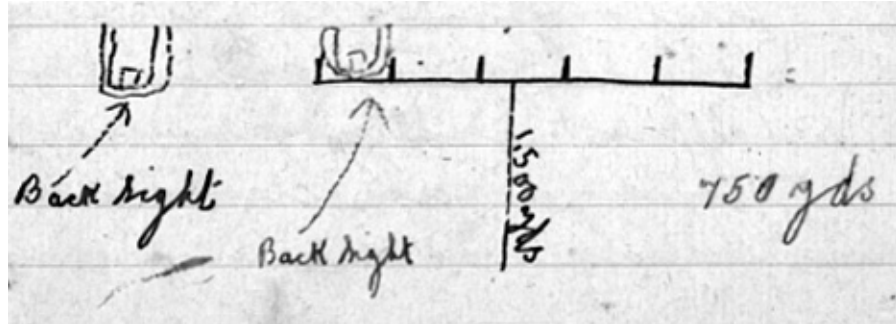 Back Sight
Back Sight
1,500 yds
750 yds